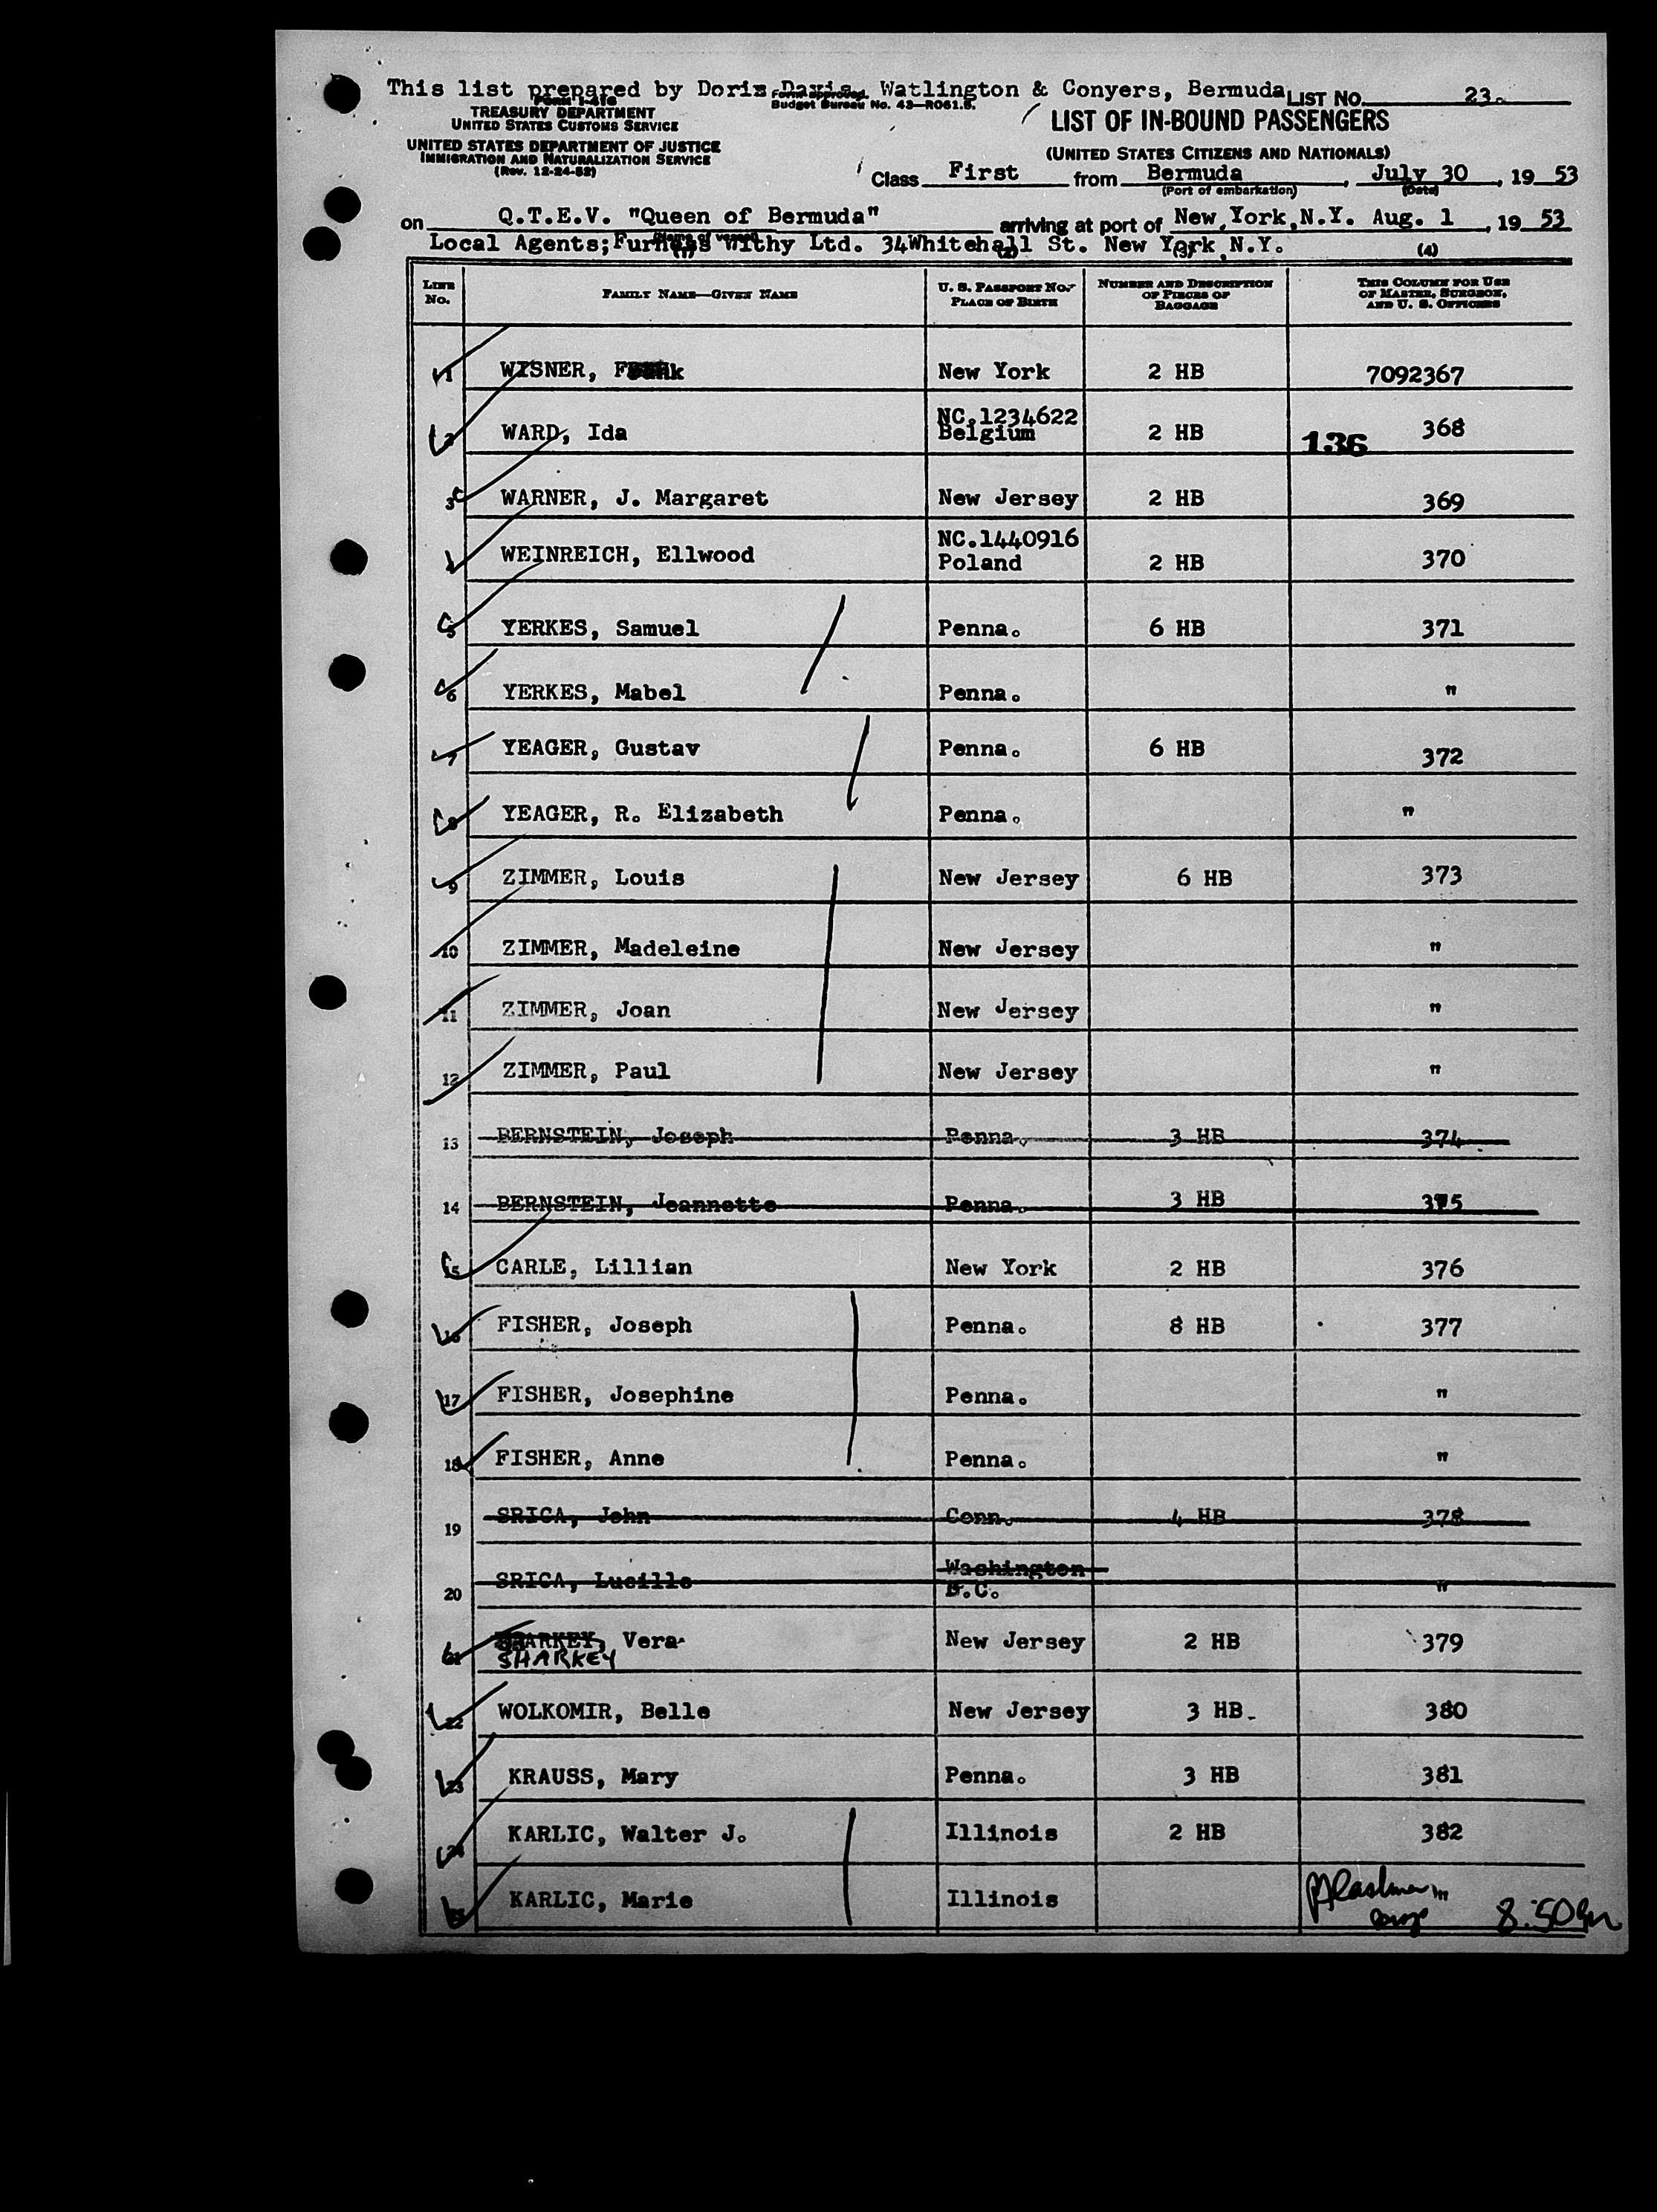 This list prepared by Doris Davis, Watlington & Conyers, Bermuda
LIST NO. 23.
Form I-416
TREASURY DEPARTMENT
UNITED STATES CUSTOMS SERVICE
UNITED STATES DEPARTMENT OF JUSTICE
IMMIGRATION AND NATURALIZATION SERVICE
(Rev. 12-24-52)
Form approved.
Budget Bureau No. 43—R061.5.
LIST OF IN-BOUND PASSENGERS
(UNITED STATES CITIZENS AND NATIONALS)
Class First from Bermuda, July 30, 19 53
(Port of embarkation) (Date)
on Q.T.E.V. "Queen of Bermuda" arriving at port of New York, N.Y. Aug. 1, 19 53
(Name of vessel)
Local Agents; Furness Withy Ltd. 34Whitehall St. New York, N.Y.
(1) (2) (3) (4)
LINE No. FAMILY NAME—GIVEN NAME U. S. PASSPORT NO. PLACE OF BIRTH NUMBER AND DESCRIPTION OF PIECES OF BAGGAGE THIS COLUMN FOR USE OF MASTER, SURGEON, AND U. S. OFFICERS
1 WISNER, Frank New York 2 HB 7092367
NC.1234622
2 WARD, Ida Belgium 2 HB 136 368
3 WARNER, J. Margaret New Jersey 2 HB 369
NC.1440916
4 WEINREICH, Ellwood Poland 2 HB 370
5 YERKES, Samuel Penna. 6 HB 371
6 YERKES, Mabel Penna. "
7 YEAGER, Gustav Penna. 6 HB 372
8 YEAGER, R. Elizabeth Penna. "
9 ZIMMER, Louis New Jersey 6 HB 373
10 ZIMMER, Madeleine New Jersey "
11 ZIMMER, Joan New Jersey "
12 ZIMMER, Paul New Jersey "
13 BERNSTEIN, Joseph Penna. 3 HB 374
14 BERNSTEIN, Jeannette Penna. 3 HB 375
15 CARLE, Lillian New York 2 HB 376
16 FISHER, Joseph Penna. 8 HB 377
17 FISHER, Josephine Penna. "
18 FISHER, Anne Penna. "
19 SRICA, John Conn. 4 HB 378
20 SRICA, Lucille Washington D.C. "
21 Vera New Jersey 2 HB 379
SHARKEY
22 WOLKOMIR, Belle New Jersey 3 HB 380
23 KRAUSS, Mary Penna. 3 HB 381
24 KARLIC, Walter J. Illinois 2 HB 382
25 KARLIC, Marie Illinois "
8:50